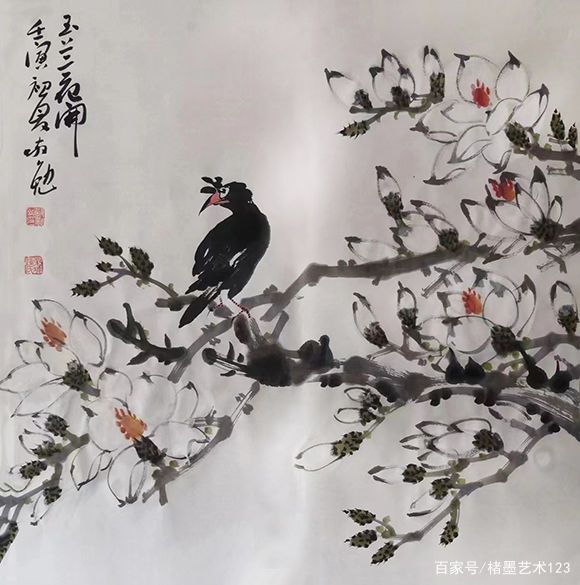 玉兰花開
壬寅初夏勉
百家号/楮墨艺术123